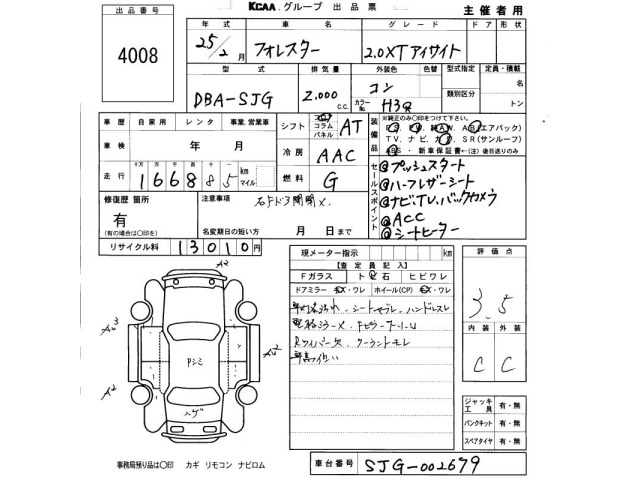 出品番号
4008
KCAA グループ 出品票
主催者用
年式 車名 グレード ドア 形状
25/2月 フォレスター 2.0XTアイサイト
型式 排気量 外装色 色替 型式指定 定員・積載
DBA-SJG 2.000 c.c. コン カラーNo. H3Q 類別区分 名 トン
車歴 自家用 レンタ 事業、営業車
シフト コラム パネル AT
装備品
※純正のみ〇印をつけて下さい。
(エアバック)
TV、ナビ、SR(サンルーフ)
・新車保証書─(注)後日送りのみ
車検 年 月
冷房 AAC
走行 十万 万 千 百 十 一 km マイル
166885
燃料 G
セールスポイント
@プッシュスタート
@ハーフレザーシート
@ナビ、TV、バックカメラ
@ACC
@シートヒーター
修復歴 箇所
有
(有の場合は〇印を)
注意事項
右Fドア開閉×.
名変期日の短い方 月 日まで
リサイクル料 13010円
現メーター指示 km
【査定員記入】
Fガラス トビ石 ヒビワレ
ドアミラー キズ・ワレ ホイール(CP) キズ・ワレ
シートモブレ、ハンドルスレ
Rワイパー欠、クーラントモレ
評価点
3.5
内装 外装
C C
ジャッキ工具 有・無
パンクキット 有・無
スペアタイヤ 有・無
A2
Au3
A2
Au2
A2
Pシミ
ハゲ
事務局残り品は〇印 カギ リモコン ナビロム
車台番号 SJG-002679